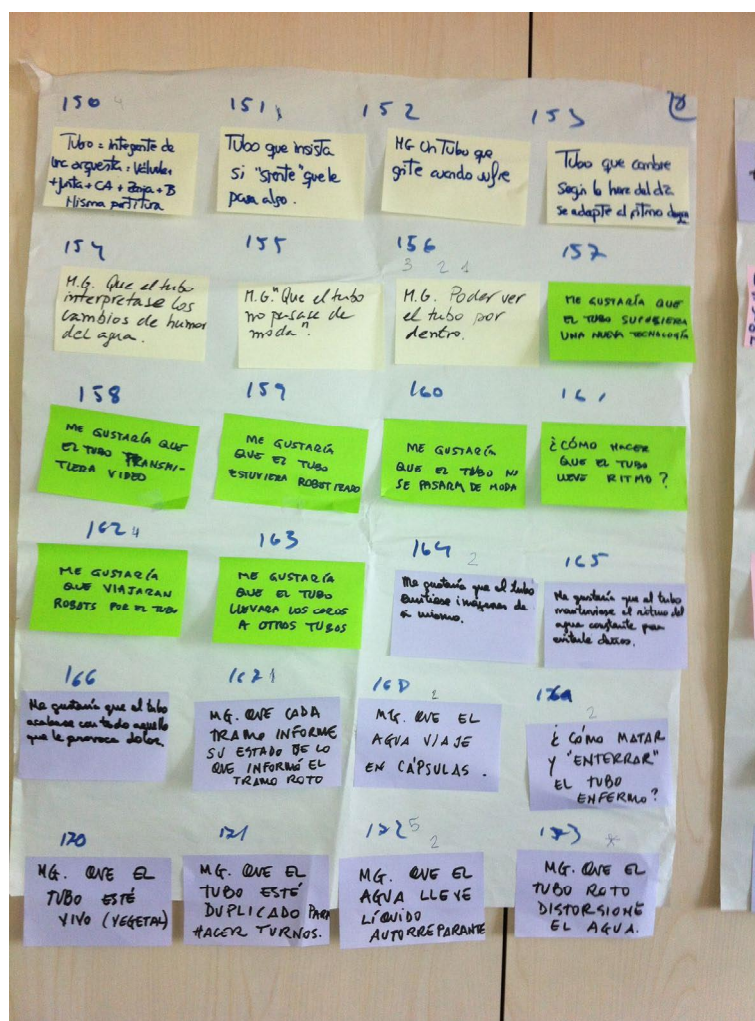 150 4
151 1
152
153
Tubo = integrante de
una orquesta: Válvulas
+ Junta + CA + Zanja + B
Misma partitura
Tubo que insista
si "siente" que le
pasa algo.
MG Un Tubo que
grite cuando sufre
Tubo que cambie
según la hora del día
se adapte al ritmo
154
155
156
3 2 1
157
M.G. Que el tubo
interpretase los
cambios de humor
del agua.
M.G. "Que el tubo
no pasase de
moda".
M.G. Poder ver
el tubo por
dentro.
ME GUSTARÍA QUE
EL TUBO SUPUSIERA
UNA NUEVA TECNOLOGÍA
158
159
160
161
ME GUSTARÍA QUE
EL TUBO TRANSMI-
TIERA VIDEO
ME GUSTARÍA
QUE EL TUBO
ESTUVIERA ROBOTIZADO
ME GUSTARÍA
QUE EL TUBO NO
SE PASARA DE MODA
¿CÓMO HACER
QUE EL TUBO
LLEVE RITMO?
162 4
163
164 2
165
ME GUSTARÍA
QUE VIAJARAN
ROBOTS POR EL TUBO
ME GUSTARÍA
QUE EL TUBO
LLEVARA LOS
A OTROS TUBOS
Me gustaría que el tubo
emitiese imágenes de
si mismo.
Me gustaría que el tubo
mantuviese el ritmo del
agua constante para
evitarle daños.
166
167 1
168 2
169
2
Me gustaría que el tubo
acabase con todo aquello
que le provoca dolor.
MG. QUE CADA
TRAMO INFORME
SU ESTADO DE LO
QUE INFORMÓ EL
TRAMO ROTO
MG. QUE EL
AGUA VIAJE
EN CÁPSULAS.
¿CÓMO MATAR
Y "ENTERRAR"
EL TUBO
ENFERMO?
170
171
172 5
2
173 *
MG. QUE EL
TUBO ESTÉ
VIVO (VEGETAL)
MG. QUE EL
TUBO ESTÉ
DUPLICADO PARA
HACER TURNOS.
MG. QUE EL
AGUA LLEVE
LÍQUIDO
AUTORREPARANTE
MG. QUE EL
TUBO ROTO
DISTORSIONE
EL AGUA.